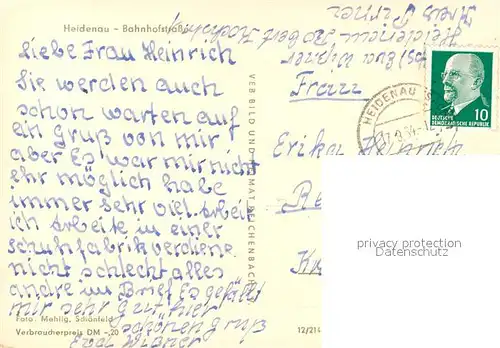 Heidenau - Bahnhofstraße
Liebe Frau Heinrich
Sie werden auch
schon warten auf
ein Gruß von mir
aber Es war mir nicht
ehr möglich habe
immer sehr viel Arbeit
ich arbeite in einer
schuhfabrik verdiene
nicht schlecht alles
andre im Brief Es gefällt
mir sehr gut hier
schönen gruß
Foto: Mehlig, Schönfeld
Verbraucherpreis DM -,20
VEB BILD UND HEIMAT REICHENBACH
12/214
Frau
Erika Heinrich
Heidenau Robert Koch
Kreis Pirna
HEIDENAU
10
DEUTSCHE
DEMOKRATISCHE REPUBLIK
privacy protection
Datenschutz